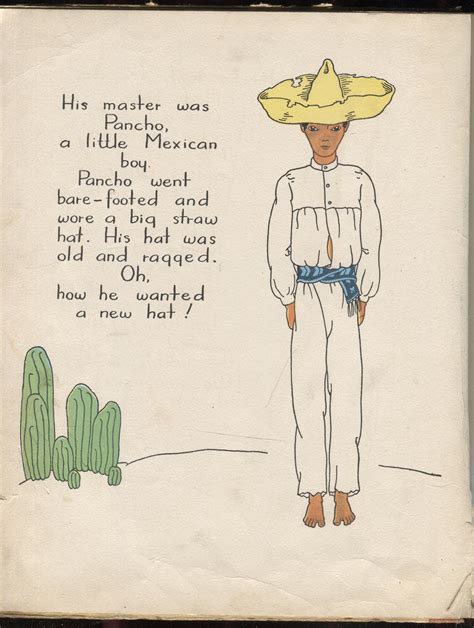 His master was
Pancho,
a little Mexican
boy.
Pancho went
bare-footed and
wore a big straw
hat. His hat was
old and ragged.
Oh,
how he wanted
a new hat!